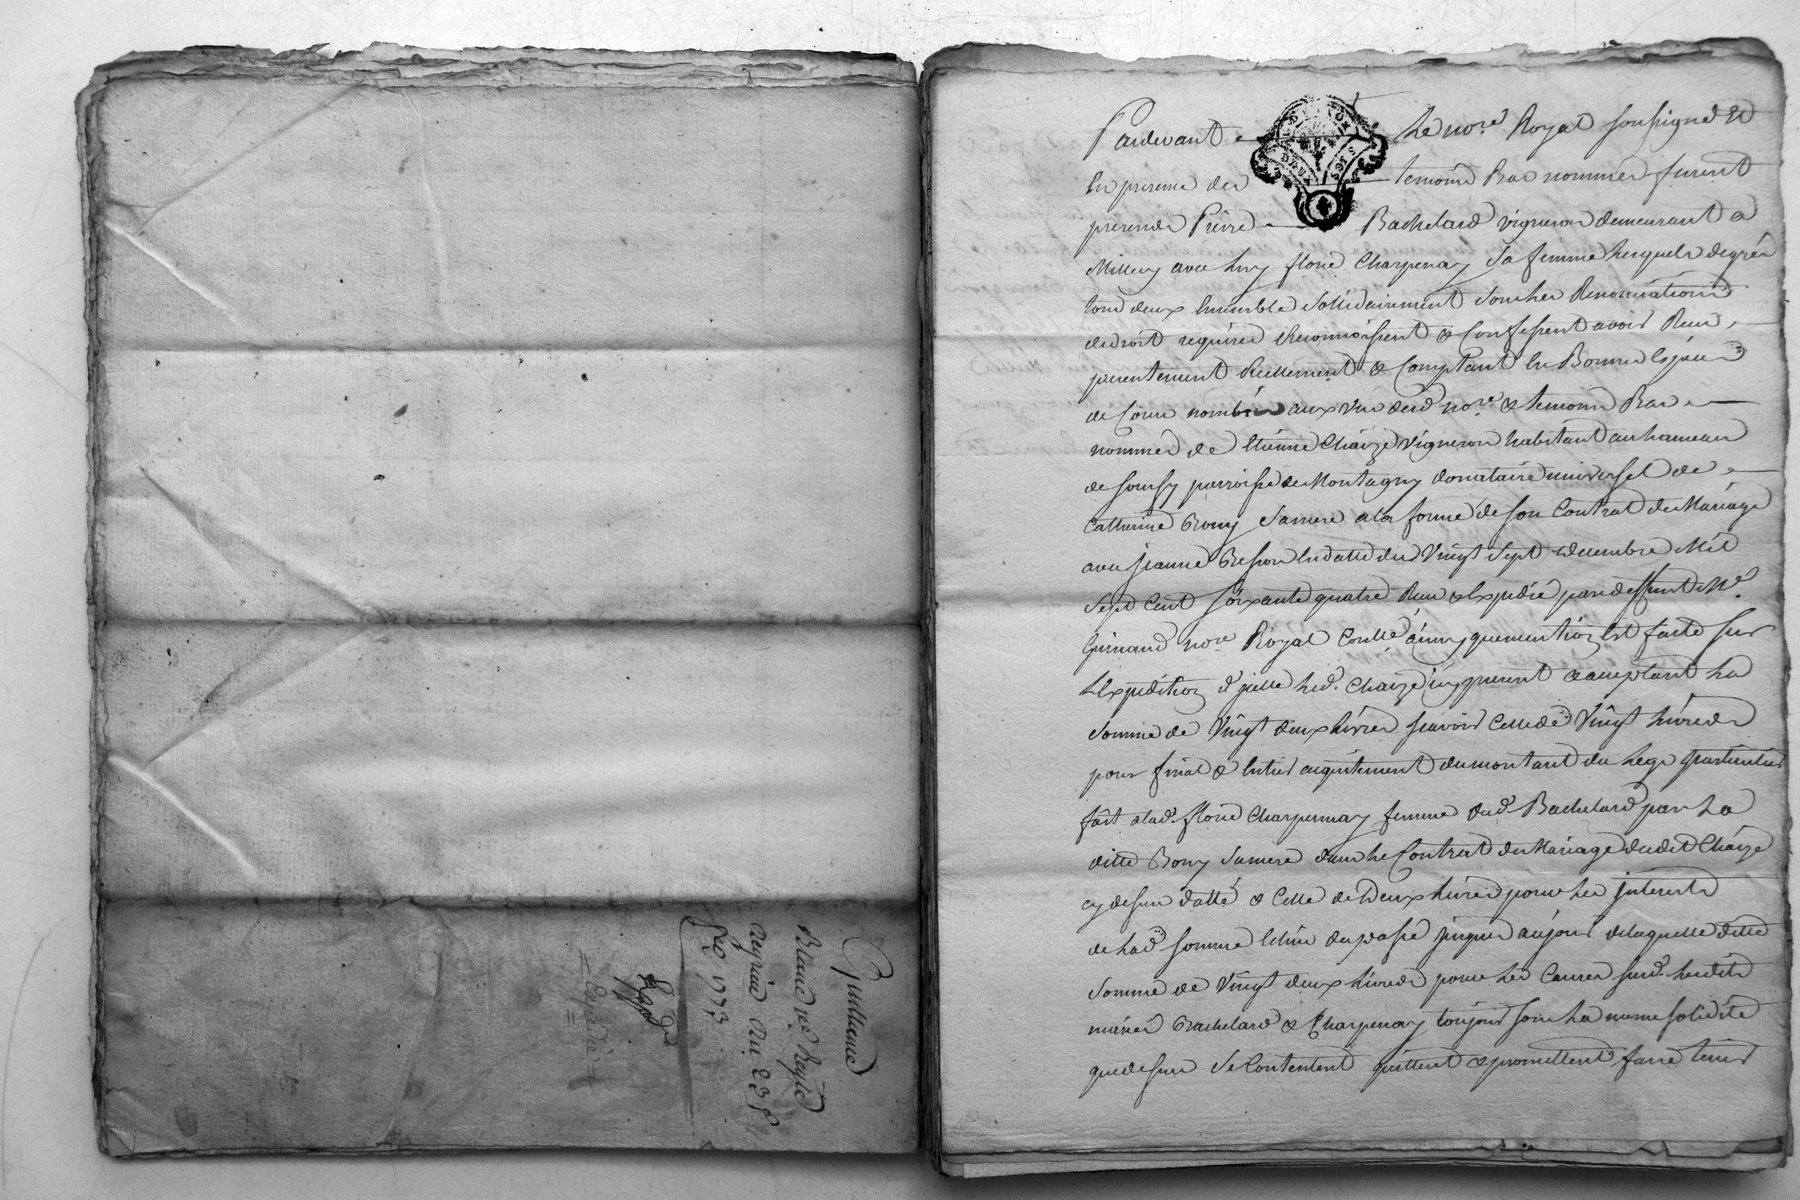 Quittance
Blanc
du 23
1773
Expedié
Pardevant Le no.re Royal soussigné et
En presence des temoins Bas nommés furent
presends Pierre Bachelard vigneron demeurant a
Millery avec luy florie Charpenay sa femme lesquels de gré
tous deux Ensemble solidairement sous les Renonciations
de droit requises Reconnoissent & Confessent avoir Reçu
presentement Reellement & Comptant En Bonnes Especes
de Cours nombrées aux vus dud. no.re & temoins Bas
nommés de Etienne Chaize vigneron habitant au hameau
de Sourzy parroisse de Montagny donataire universel de
Catherine Bony sa mere a la forme de son Contrat de Mariage
avec jeanne Besson En datte du Vingt Sept decembre Mil
Sept Cent soixante quatre Reçu & Expedié par deffunt M.e
Guinand no.re Royal est faitte sur
L'Expedition d'jcelle led. Chaize jcy present & acceptant La
Somme de Vingt deux Livres scavoir Celle de Vingt Livres
pour final & Entier aquittement du montant du Legs particulier
fait a lad. florie Charpennay femme dud. Bachelard par La
ditte Bony sa mere dans Le Contrat de Mariage dudit Chaize
cy dessus datté & Celle de Deux Livres pour les jnterests
de Lad. somme Echus du passé jusques aujourd. de laquelle ditte
Somme de Vingt deux Livres pour les Causes susd. Lesdits
mariés Bachelard & Charpenay toujours sous La meme solidité
que dessus se Contentent quittent & promettent faire tenir